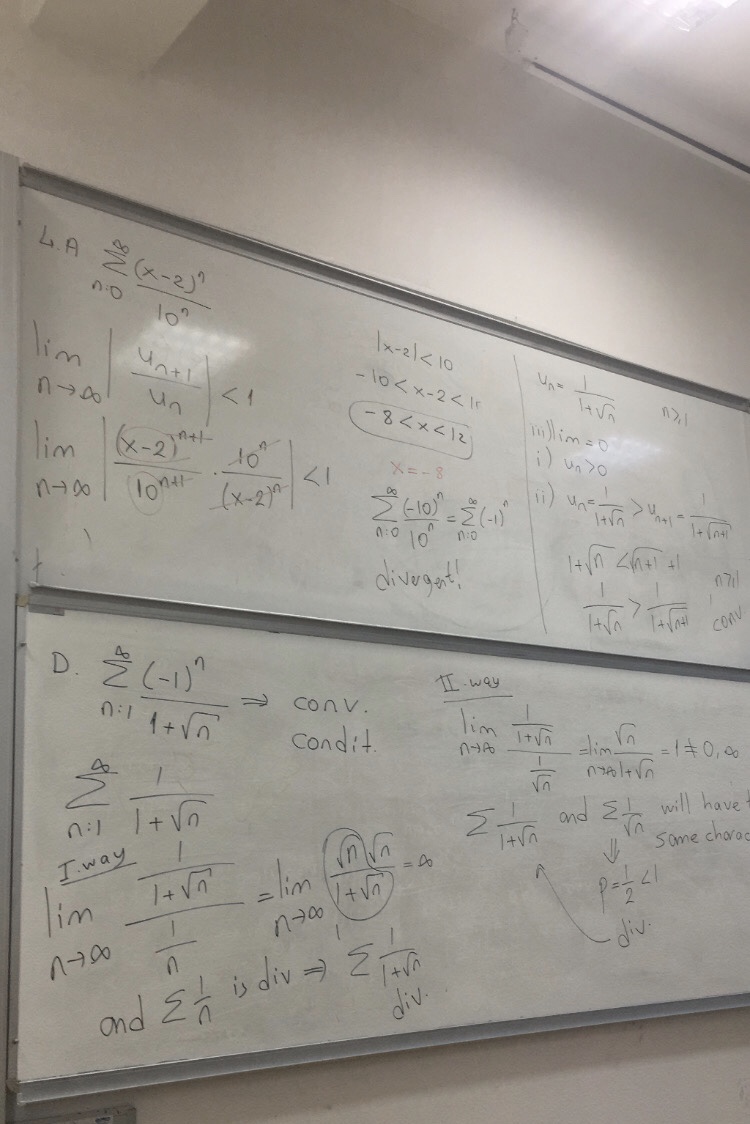 4.A ∑_{n=0}^{∞} (x-2)^n / 10^n
lim_{n→∞} | u_{n+1} / u_n | < 1
lim_{n→∞} | (x-2)^{n+1} / 10^{n+1} · 10^n / (x-2)^n | < 1
|x-2| < 10
-10 < x-2 < 10
-8 < x < 12
x = -8
∑_{n=0}^{∞} (-10)^n / 10^n = ∑_{n=0}^{∞} (-1)^n
divergent!
u_n = 1 / (1+√n) n≥1
iii) lim = 0
i) u_n > 0
ii) u_n = 1 / (1+√n) > u_{n+1} = 1 / (1+√(n+1))
1+√n < √(n+1) +1
n≥1
1 / (1+√n) > 1 / (1+√(n+1))
conv
D. ∑_{n=1}^{∞} (-1)^n / (1+√n) ⇒ conv.
condit.
∑_{n=1}^{∞} 1 / (1+√n)
I.way
lim_{n→∞} (1 / (1+√n)) / (1/n) = lim_{n→∞} √n √n / (1+√n) = ∞
1
and ∑ 1/n is div ⇒ ∑ 1 / (1+√n)
div.
II.way
lim_{n→∞} (1 / (1+√n)) / (1/√n) = lim_{n→∞} √n / (1+√n) = 1 ≠ 0, ∞
∑ 1 / (1+√n) and ∑ 1/√n will have
same charac
⇓
p = 1/2 < 1
div.